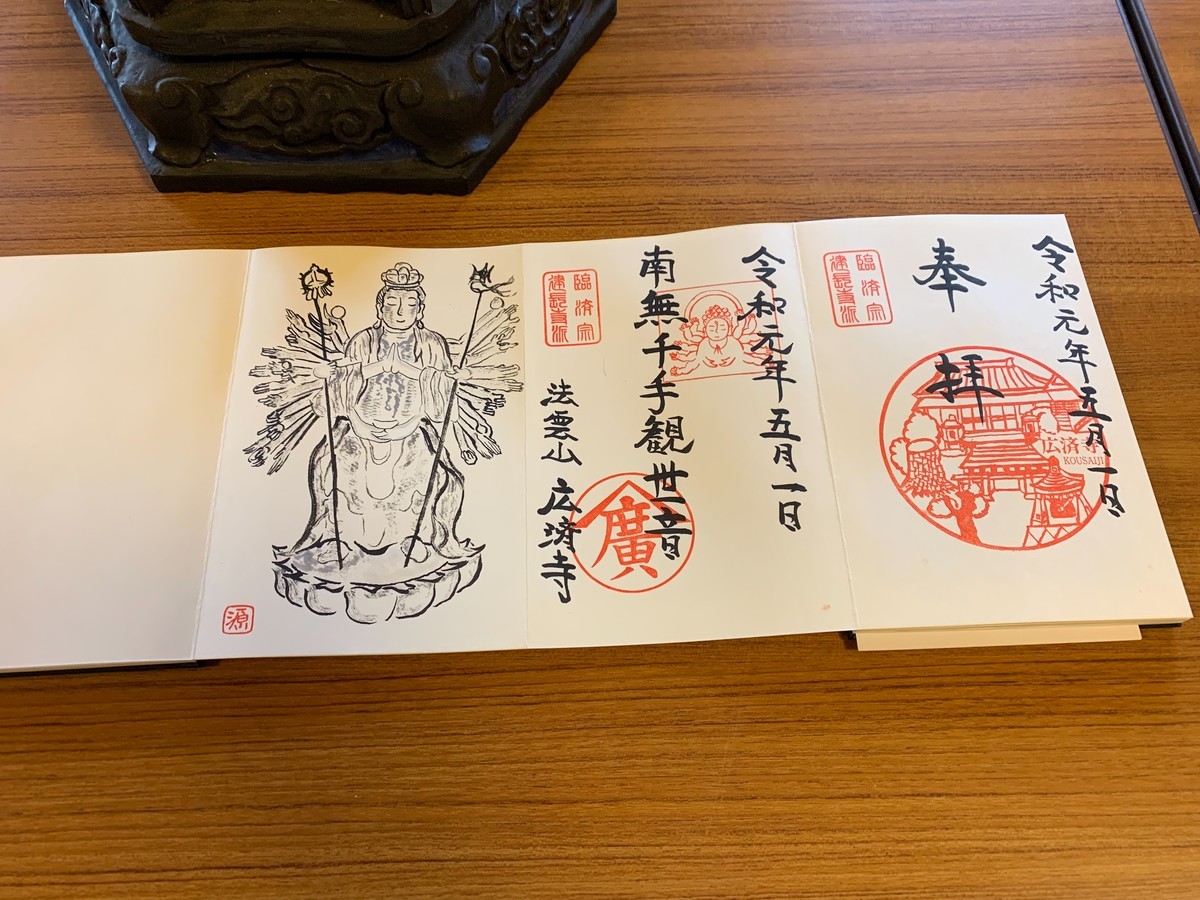 令和元年五月一日
奉拝
臨済宗
建長寺派
広済寺
KOUSAIJI
令和元年五月一日
南無千手観世音
臨済宗
建長寺派
法雲山 広済寺
廣
源